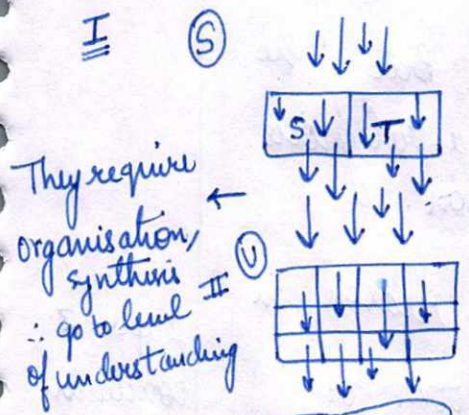 I S
S T
They require
organisation,
synthesis
U
∴ go to level II
of understanding